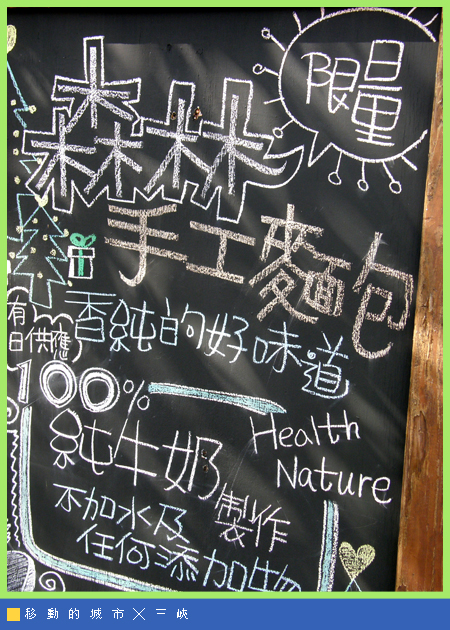 限量
森林
手工麵包
有
日供應
香純的好味道
100%
純牛奶製作
Health
Nature
不加水及
任何添加物
移動的城市╳三峽